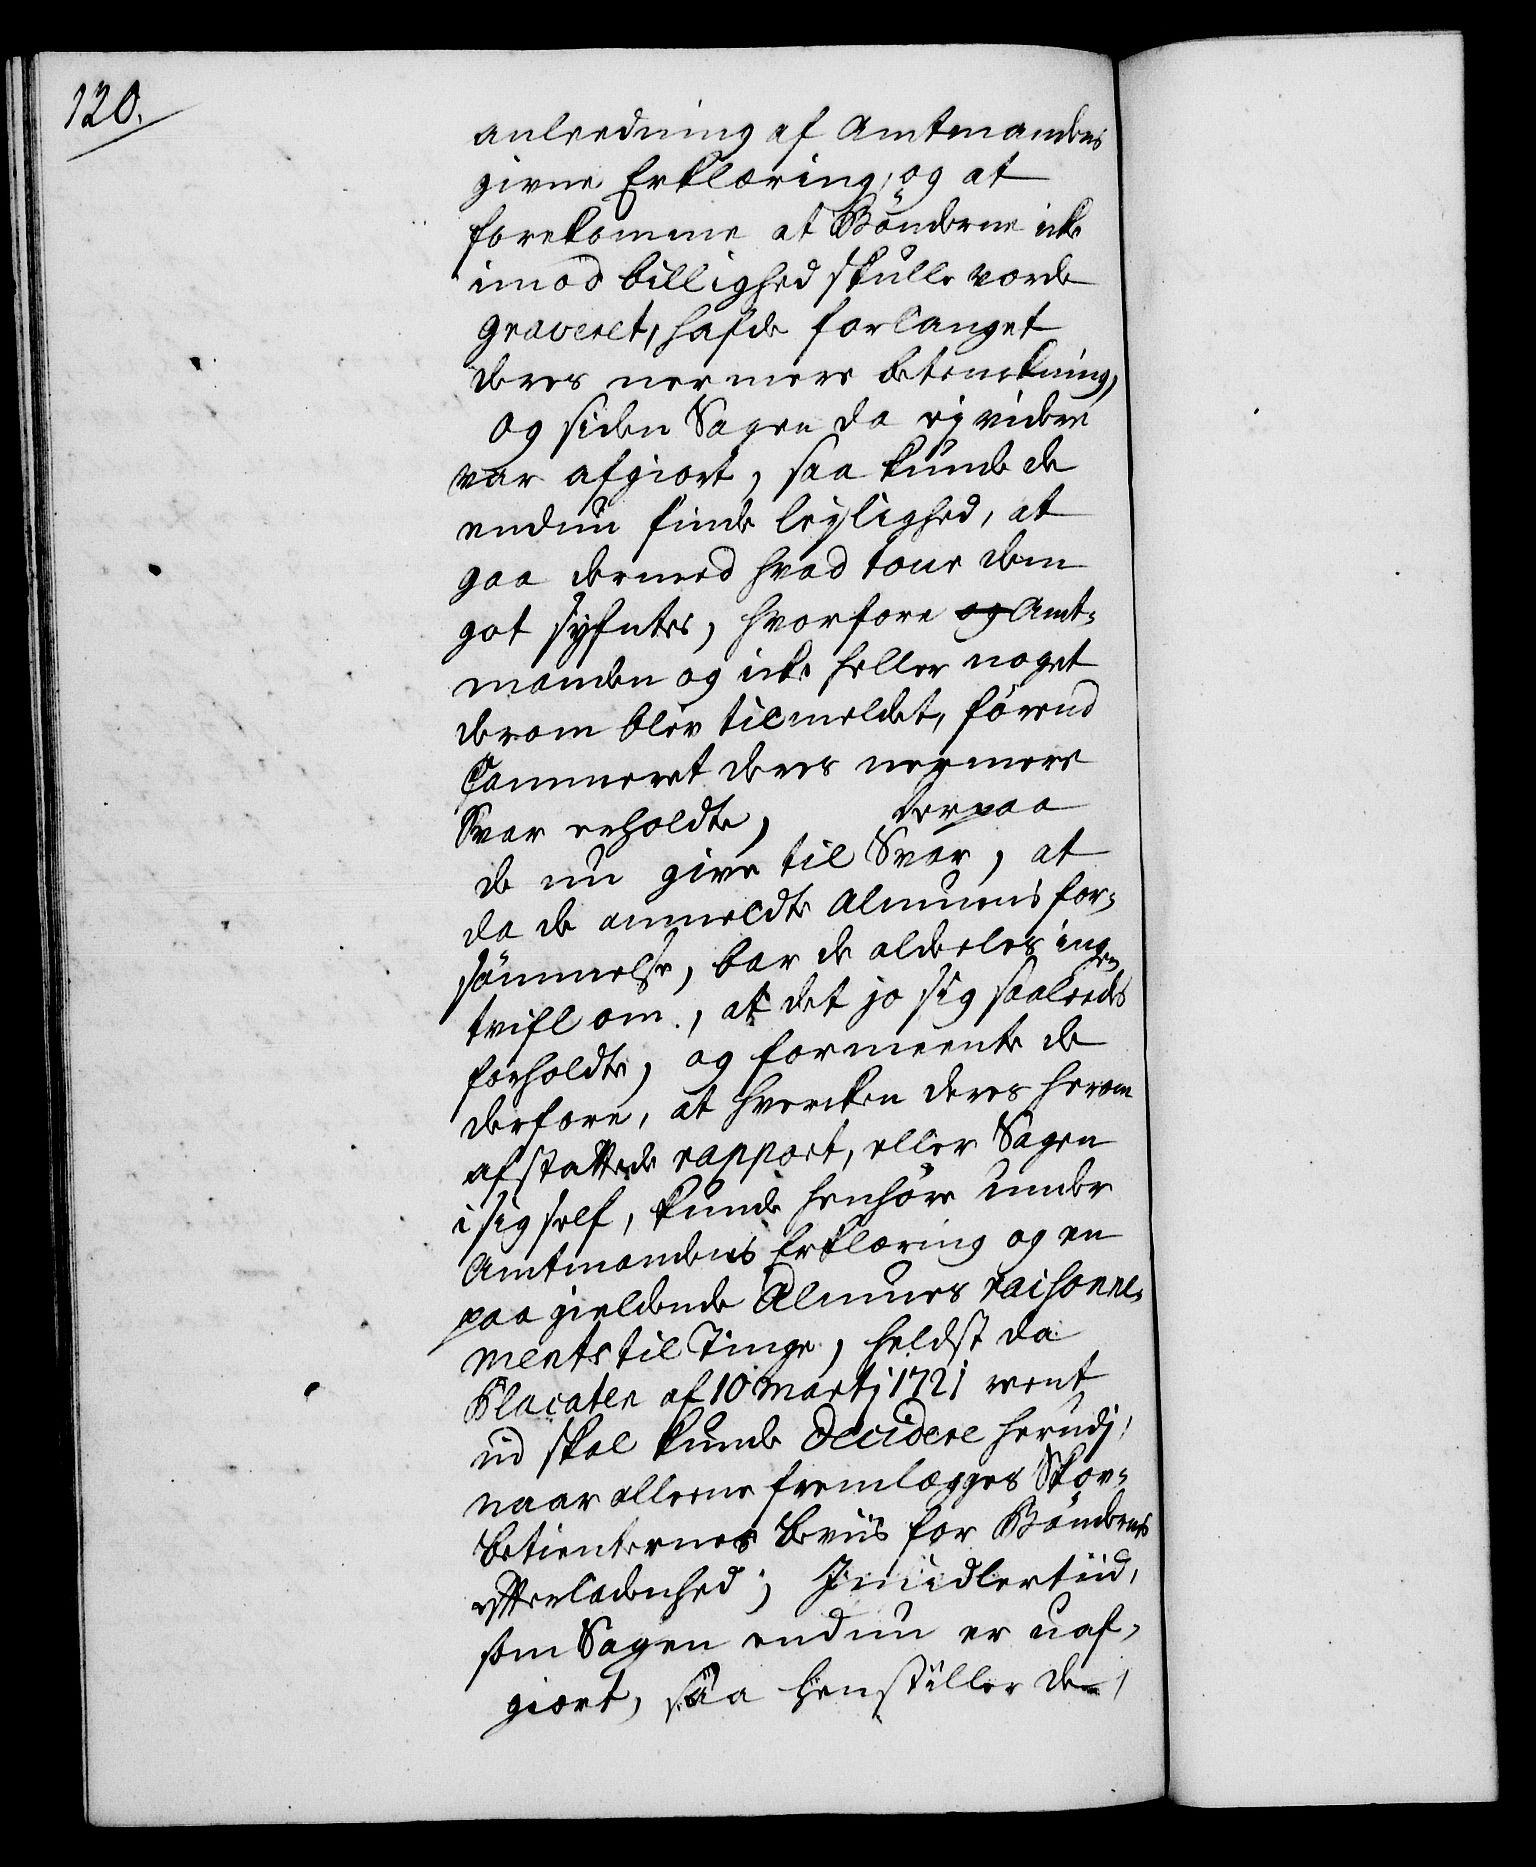 120.
anleedning af Amtmandens
givne Erklæring, og at
forekomme at Bönderne icke
imod billighed skulle vorde
graveret, hafde forlanget
deres nermere betenckning,
og siden Sagen da ej videre
var afgiort, saa kunde de
endnu finde leylighed, at
gaa dermed hvad tour dem
got syntes, hvorfore og Amt-
manden og icke heller noget
derom blev tilmeldet, förend
Cammeret deres nermere
Svar erholdte, derpaa
de nu give til Svar, at
da de anmeldte Almuens for-
sömmelse, bar de aldeles ingen
tvifl om, at det jo sig saaleeds
forholdte, og formeente de
derfore, at hvercken deres herom
afstattede rapport, eller Sagen
i sig self, kunde henhöre under
Amtmandens Erklæring og en
paa gieldende Almues raisonne-
ments til Tinge, heldst da
Placaten af 10 Martj 1721 reent
ud skal kunde decidere herudj,
naar alleene fremlægges Skov-
betienternes beviis for Böndernes
efterladenhed; Jmidlertiid,
som Sagen endnu er uaf-
giort, saa henstiller de